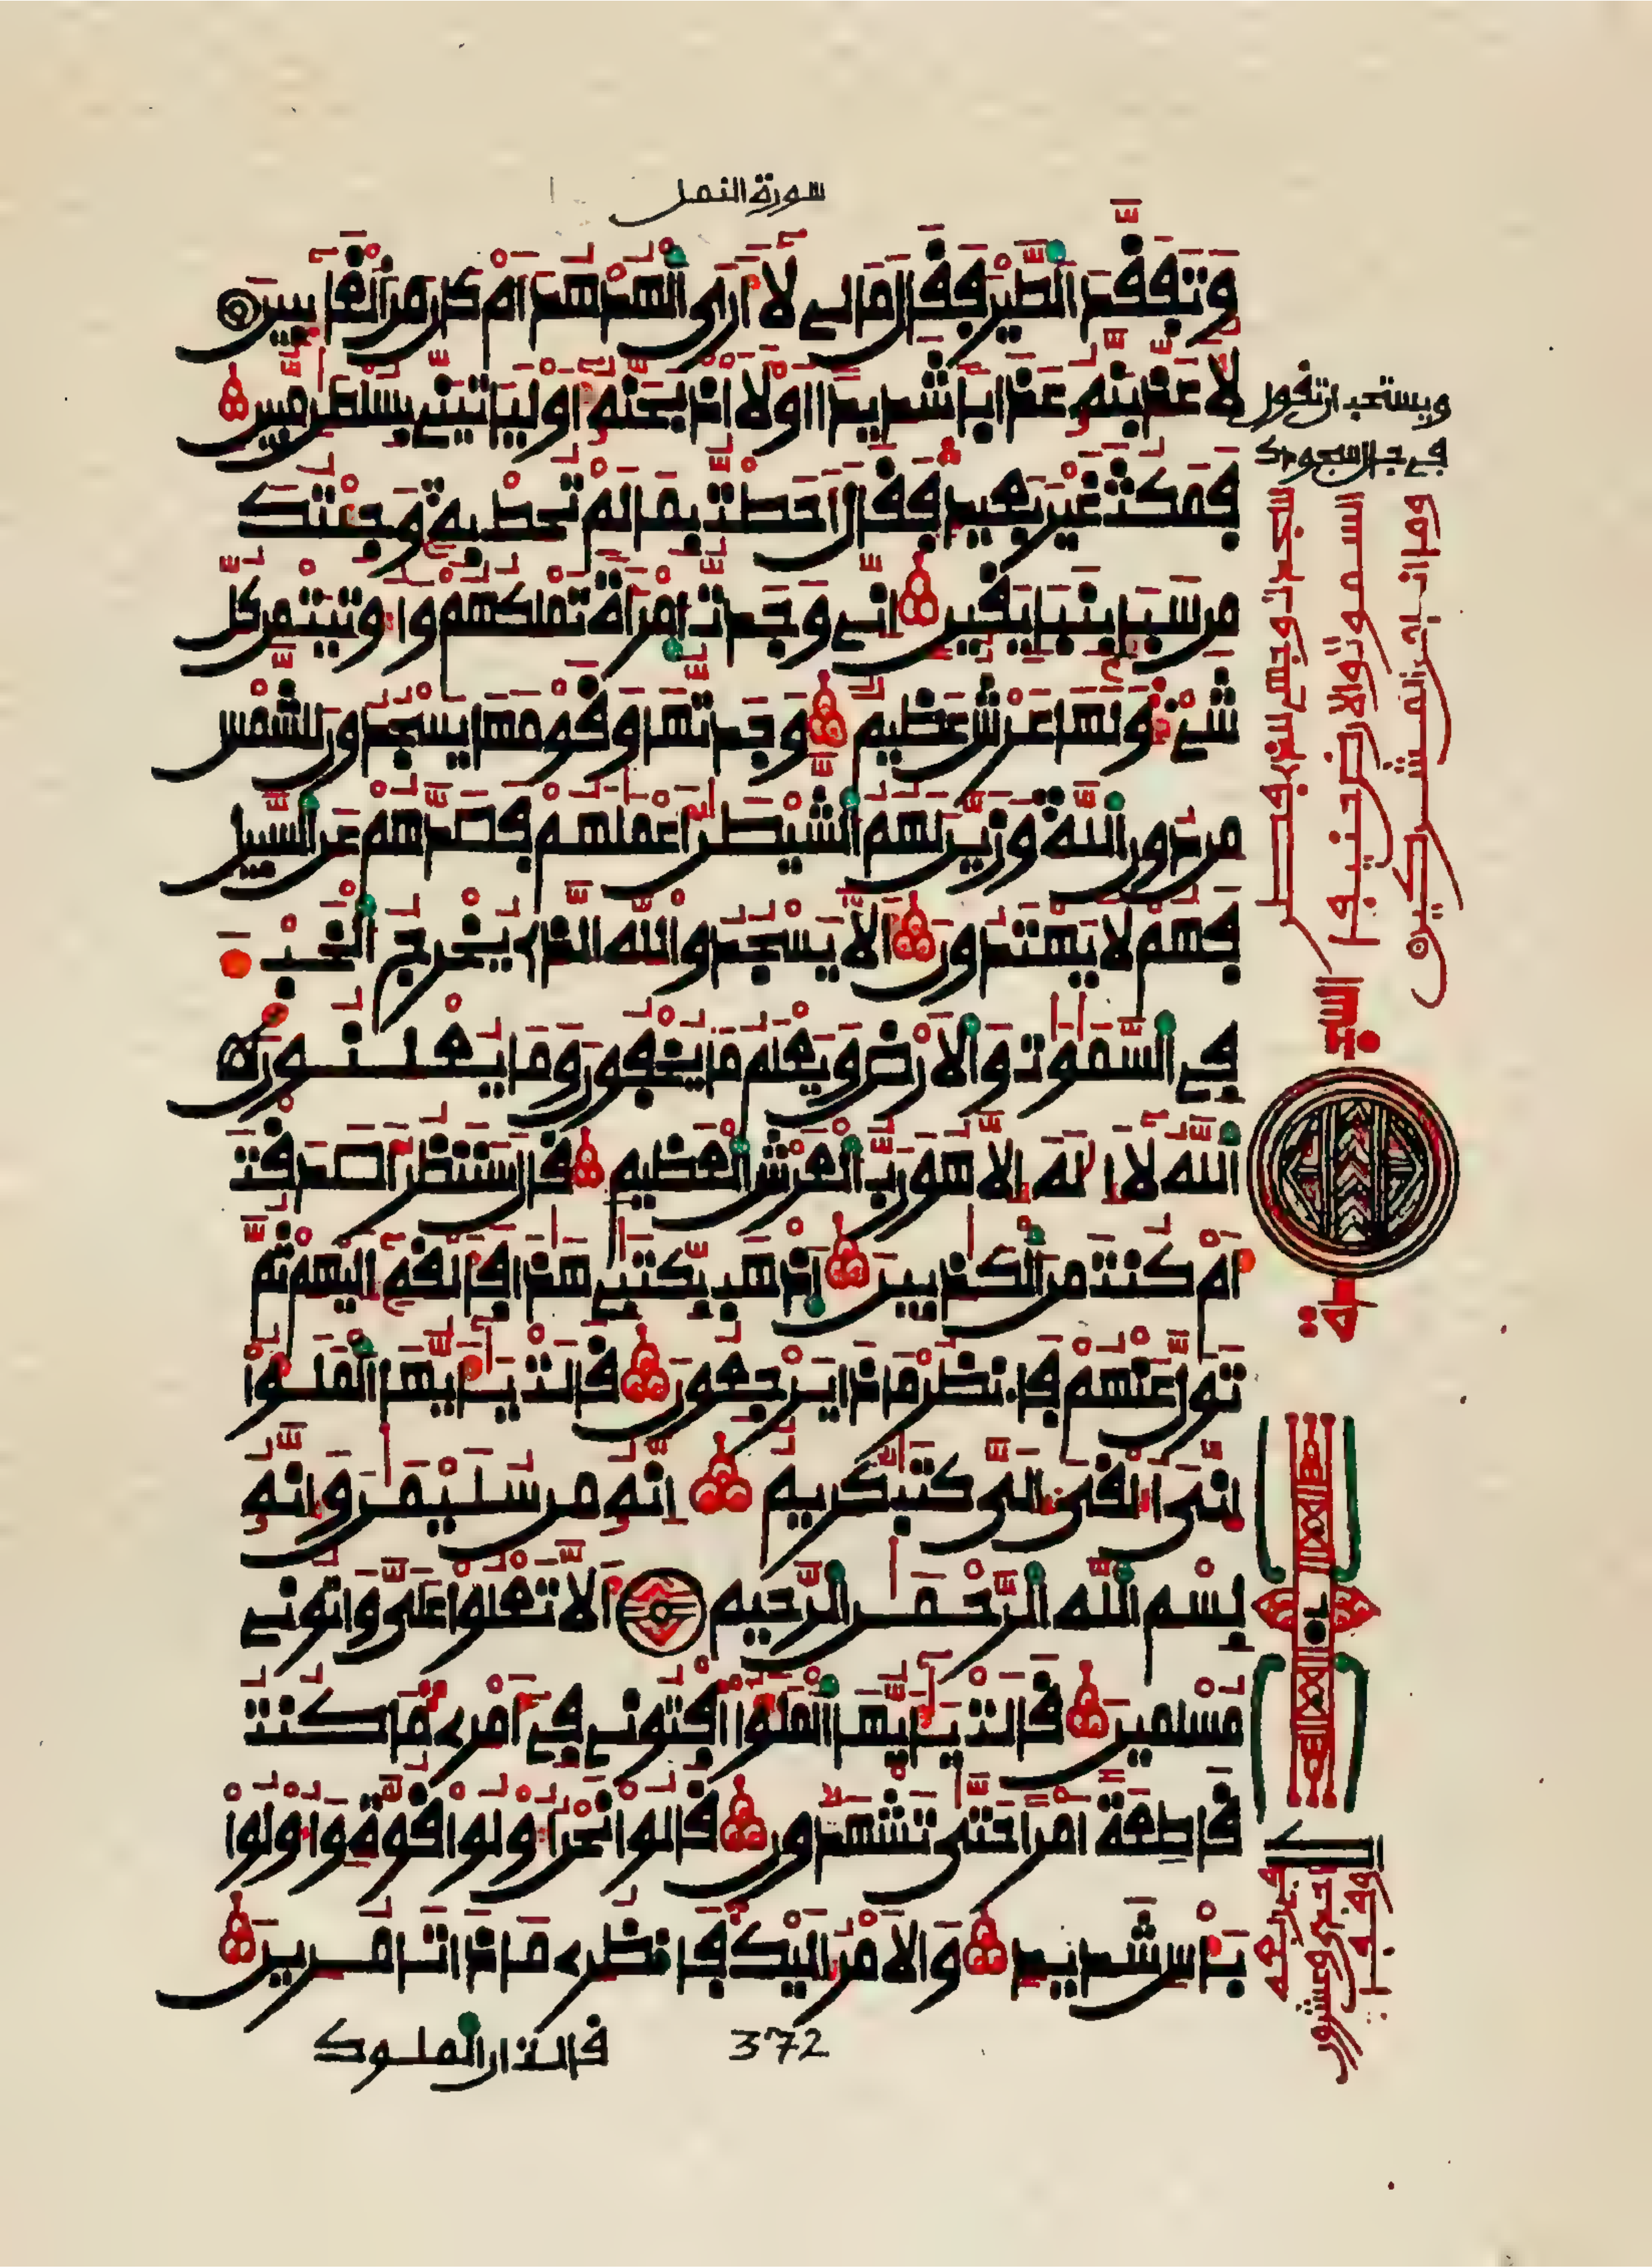 سورة النمل
وتفقد الطير فقال مالي لا أرى الهدهد أم كان من الغايبين
لأعذبنه عذابا شديدا اولأاذبحنه أوليأتيني بسلطن مبين
فمكث غير بعيد فقال أحطت بما لم تحط به وجئتك
من سبإ بنبإ يقين إني وجدت امرأة تملكهم وأوتيت من كل
شيء ولها عرش عظيم وجدتها وقومها يسجدون للشمس
من دون الله وزين لهم الشيطن أعملهم فصدهم عن السبيل
فهم لا يهتدون ألا يسجدوا لله الذي يخرج الخبء
في السموت والأرض ويعلم ما يخفون وما يعلنون
الله لا إله إلا هو رب العرش العظيم قال سننظر أصدقت
أم كنت من الكذبين اذهب بكتبي هذا فألقه إليهم ثم
تول عنهم فانظر ماذا يرجعون قالت يأيها الملؤا
إني ألقي إلي كتب كريم إنه من سليمن وإنه
بسم الله الرحمن الرحيم ألا تعلوا علي وأتوني
مسلمين قالت يأيها الملؤا أفتوني في أمري ما كنت
قاطعة أمرا حتى تشهدون قالوا نحن أولوا قوة وأولوا
بأس شديد والأمر إليك فانظري ماذا تأمرين
372
قالت إن الملوك
ويستحب ان تقول
في حال سجودك
سجدت وجهي للذي فطر
السموت والارض حنيفا
وما انا من المشركين
السجدة